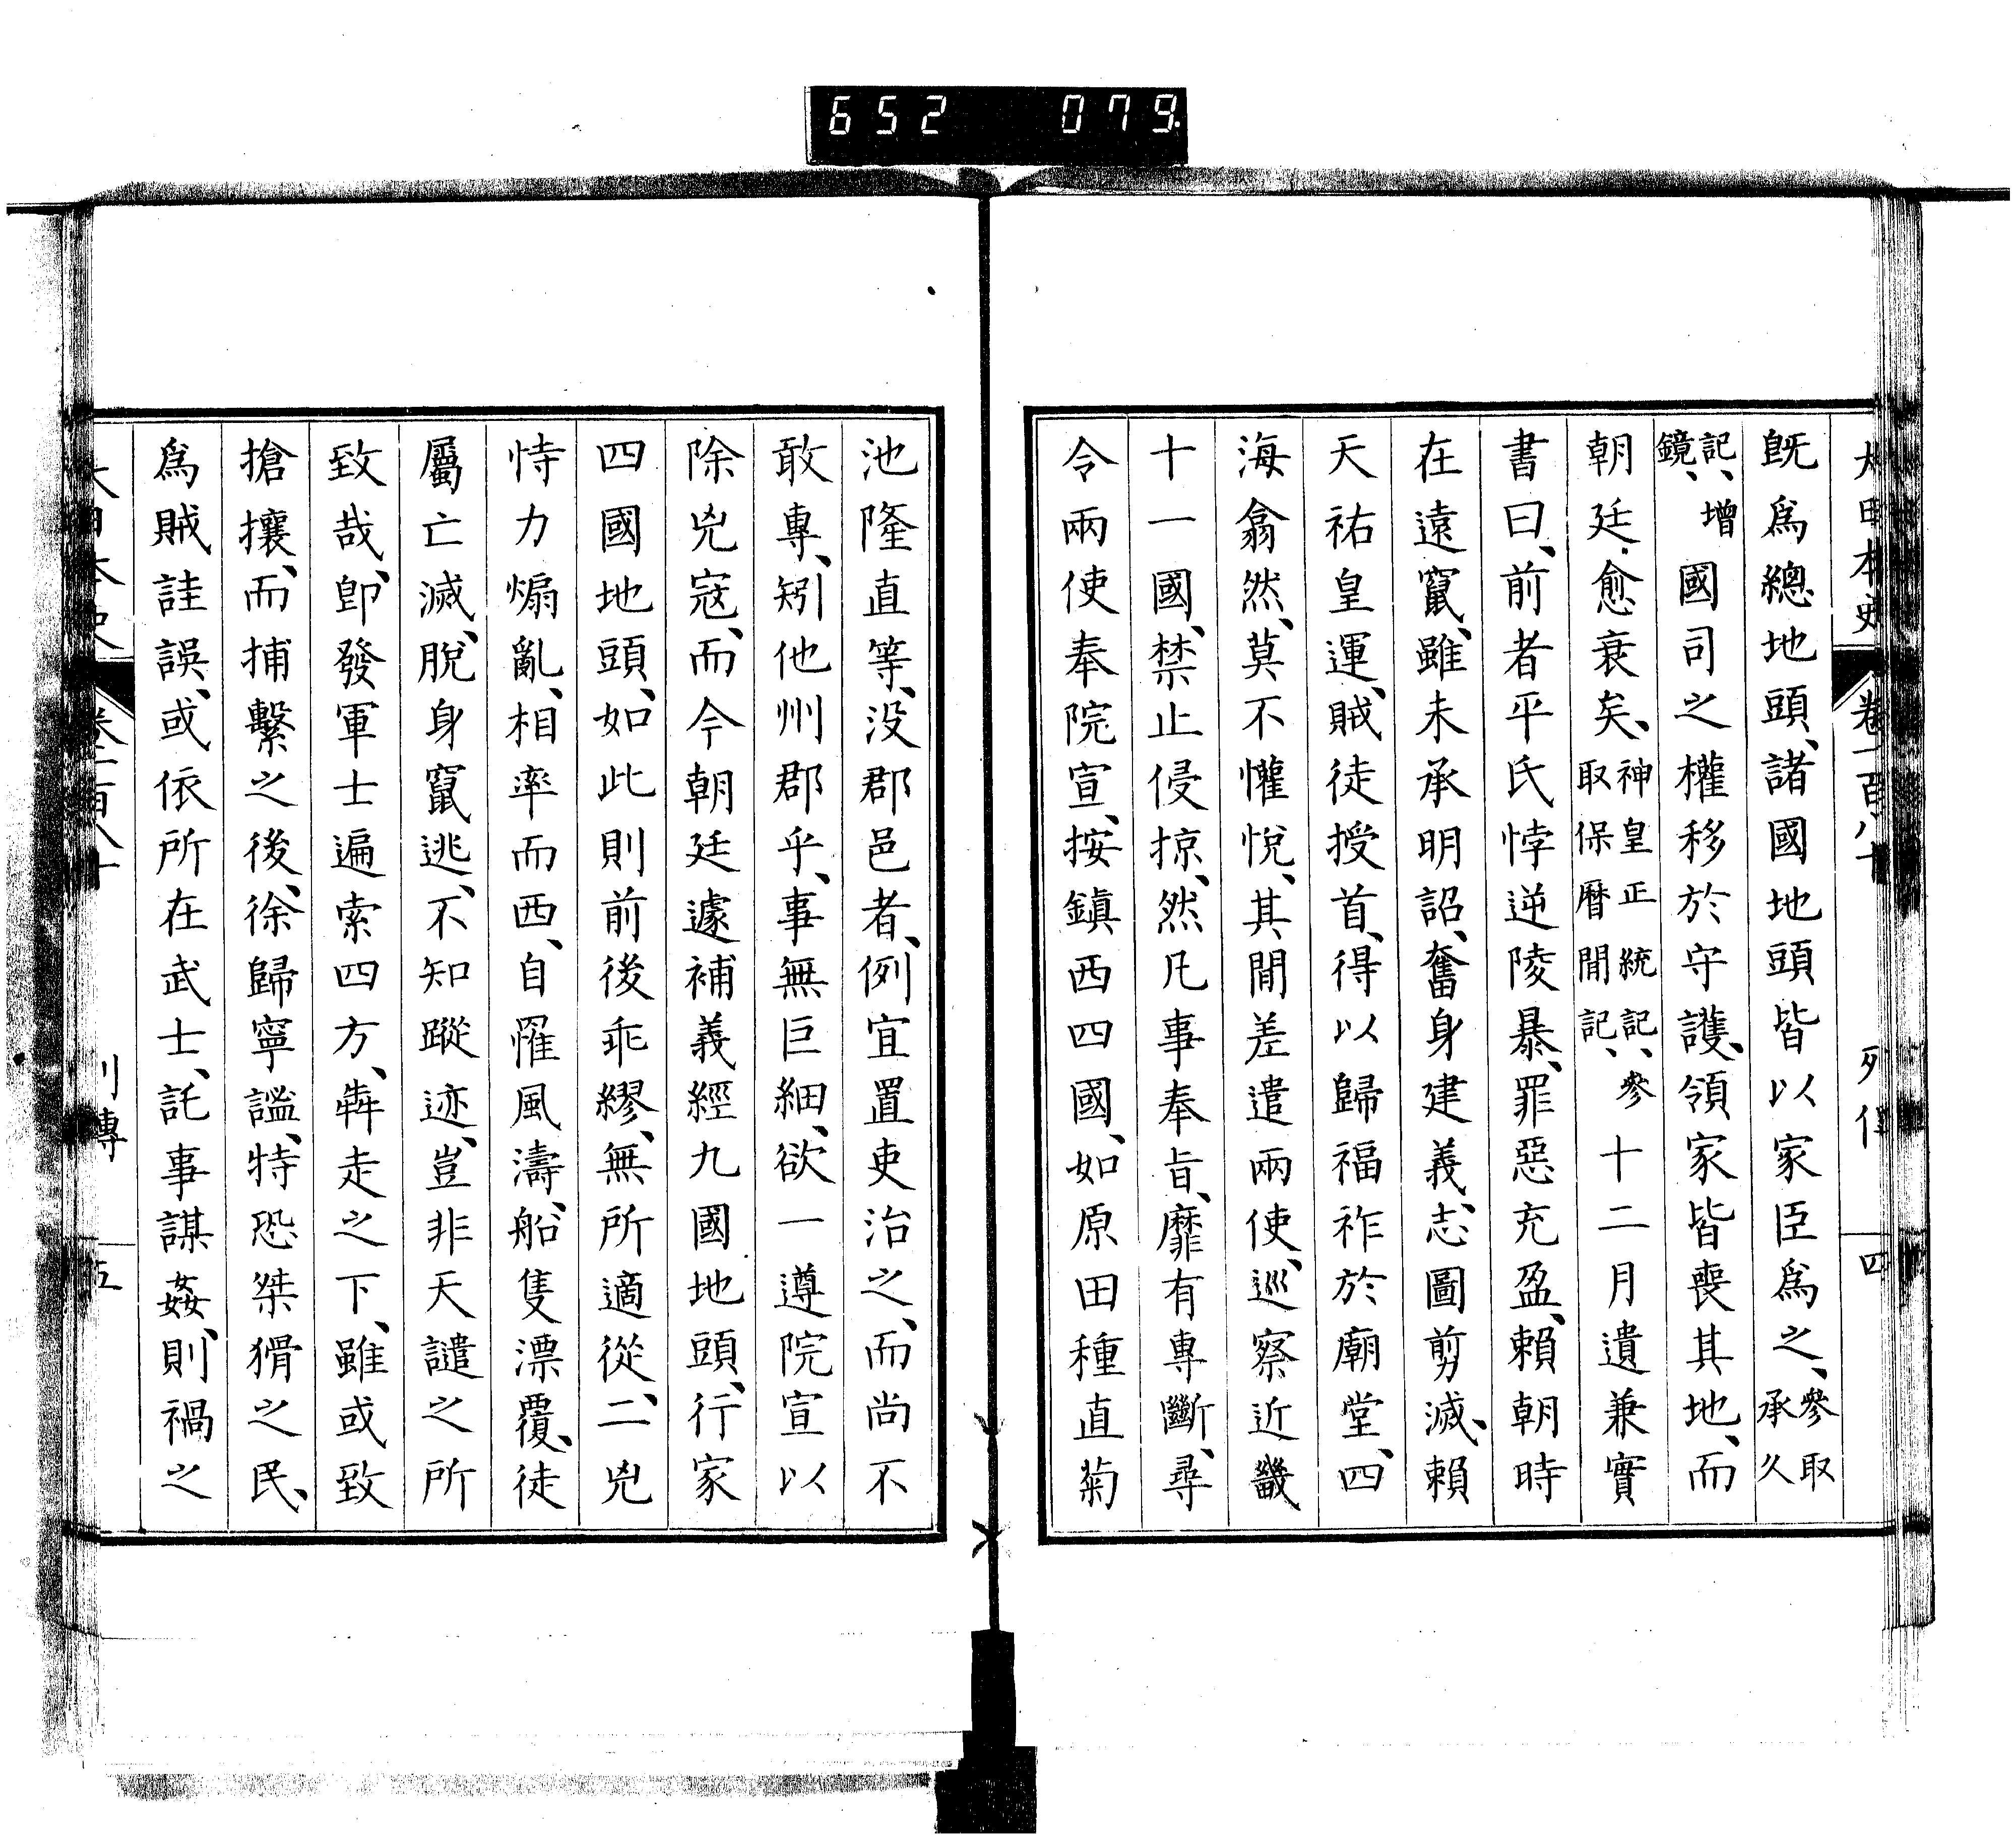 652 079.
大日本史 卷一百八十 列傳 四
既爲總地頭、諸國地頭皆以家臣爲之、參取承久
記、增鏡、國司之權移於守護、領家皆喪其地、而
朝廷愈衰矣、神皇正統記、參取保曆間記、十二月遺兼實
書曰、前者平氏悖逆陵暴、罪惡充盈、賴朝時
在遠竄、雖未承明詔、奮身建義、志圖剪滅、賴
天祐皇運、賊徒授首、得以歸福祚於廟堂、四
海翕然、莫不懽悅、其間差遣兩使、巡察近畿
十一國、禁止侵掠、然凡事奉旨、靡有專斷、尋
令兩使奉院宣、按鎭西四國、如原田種直菊
池隆直等、沒郡邑者、例宜置吏治之、而尚不
敢專、矧他州郡乎、事無巨細、欲一遵院宣以
除兇寇、而今朝廷遽補義經九國地頭、行家
四國地頭、如此則前後乖繆、無所適從、二兇
恃力煽亂、相率而西、自罹風濤、船隻漂覆、徒
屬亡滅、脫身竄逃、不知蹤迹、豈非天譴之所
致哉、卽發軍士遍索四方、犇走之下、雖或致
搶攘、而捕繫之後、徐歸寧謐、特恐桀猾之民、
爲賊詿誤、或依所在武士、託事謀姦、則禍之
大日本史 卷一百八十 列傳 五